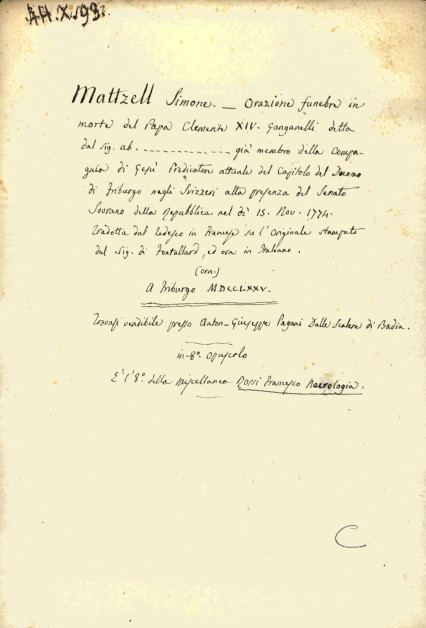 AA.X.193.
Mattzell Simone. _ Orazione funebre in
morte del Papa Clemente XIV. Ganganelli detta
dal sig. ab. - - - - - - - - - - - già membro della Compa-
gnia di Gesù Predicatore attuale del Capitolo del Duomo
di Friburgo negli Svizzeri alla presenza del Senato
Sovrano della Repubblica nel dì 15. Nov. 1774.
Tradotta dal Tedesco in Francese su l'Originale stampato
dal Sig. di Fontallard, ed ora in Italiano.
(orn.)
A Friburgo MDCCLXXV.
Trovasi vendibile presso Anton-Giuseppe Pagani Dalle Scalere di Badia.
in-8°. Opuscolo
È l'8°. della Miscellanea Rossi Francesco Necrologia.
C